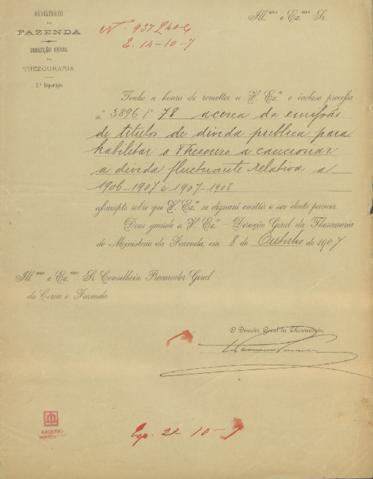 MINISTERIO
DA
FAZENDA
DIRECÇÃO GERAL
DA
THESOURARIA
Ill.mo e Ex.mo Sr.
N.º 937 L 40-G
E. 14-10-7
Tenho a honra de remetter a V. Ex.ª o incluso processo
n.º 3896 78 acerca da emissão
de titulos de divida publica para
habilitar o Thesouro a caucionar
a divida fluctuante relativa a
1906-1907 e 1907-1908
assumpto sobre que V. Ex.ª se dignará emittir o seu douto parecer.
Deus guarde a V. Ex.ª Direcção Geral da Thesouraria
do Ministerio da Fazenda, em 8 de Outubro de 1907
Ill.mo e Ex.mo Sr. Conselheiro Procurador Geral
da Coroa e Fazenda
O Director Geral da Thesouraria,
Exp. 21-10-7